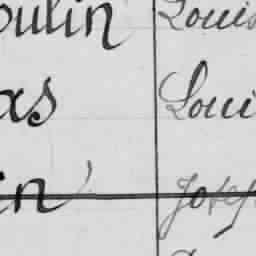 oulin Louis
as Loui
in Josep